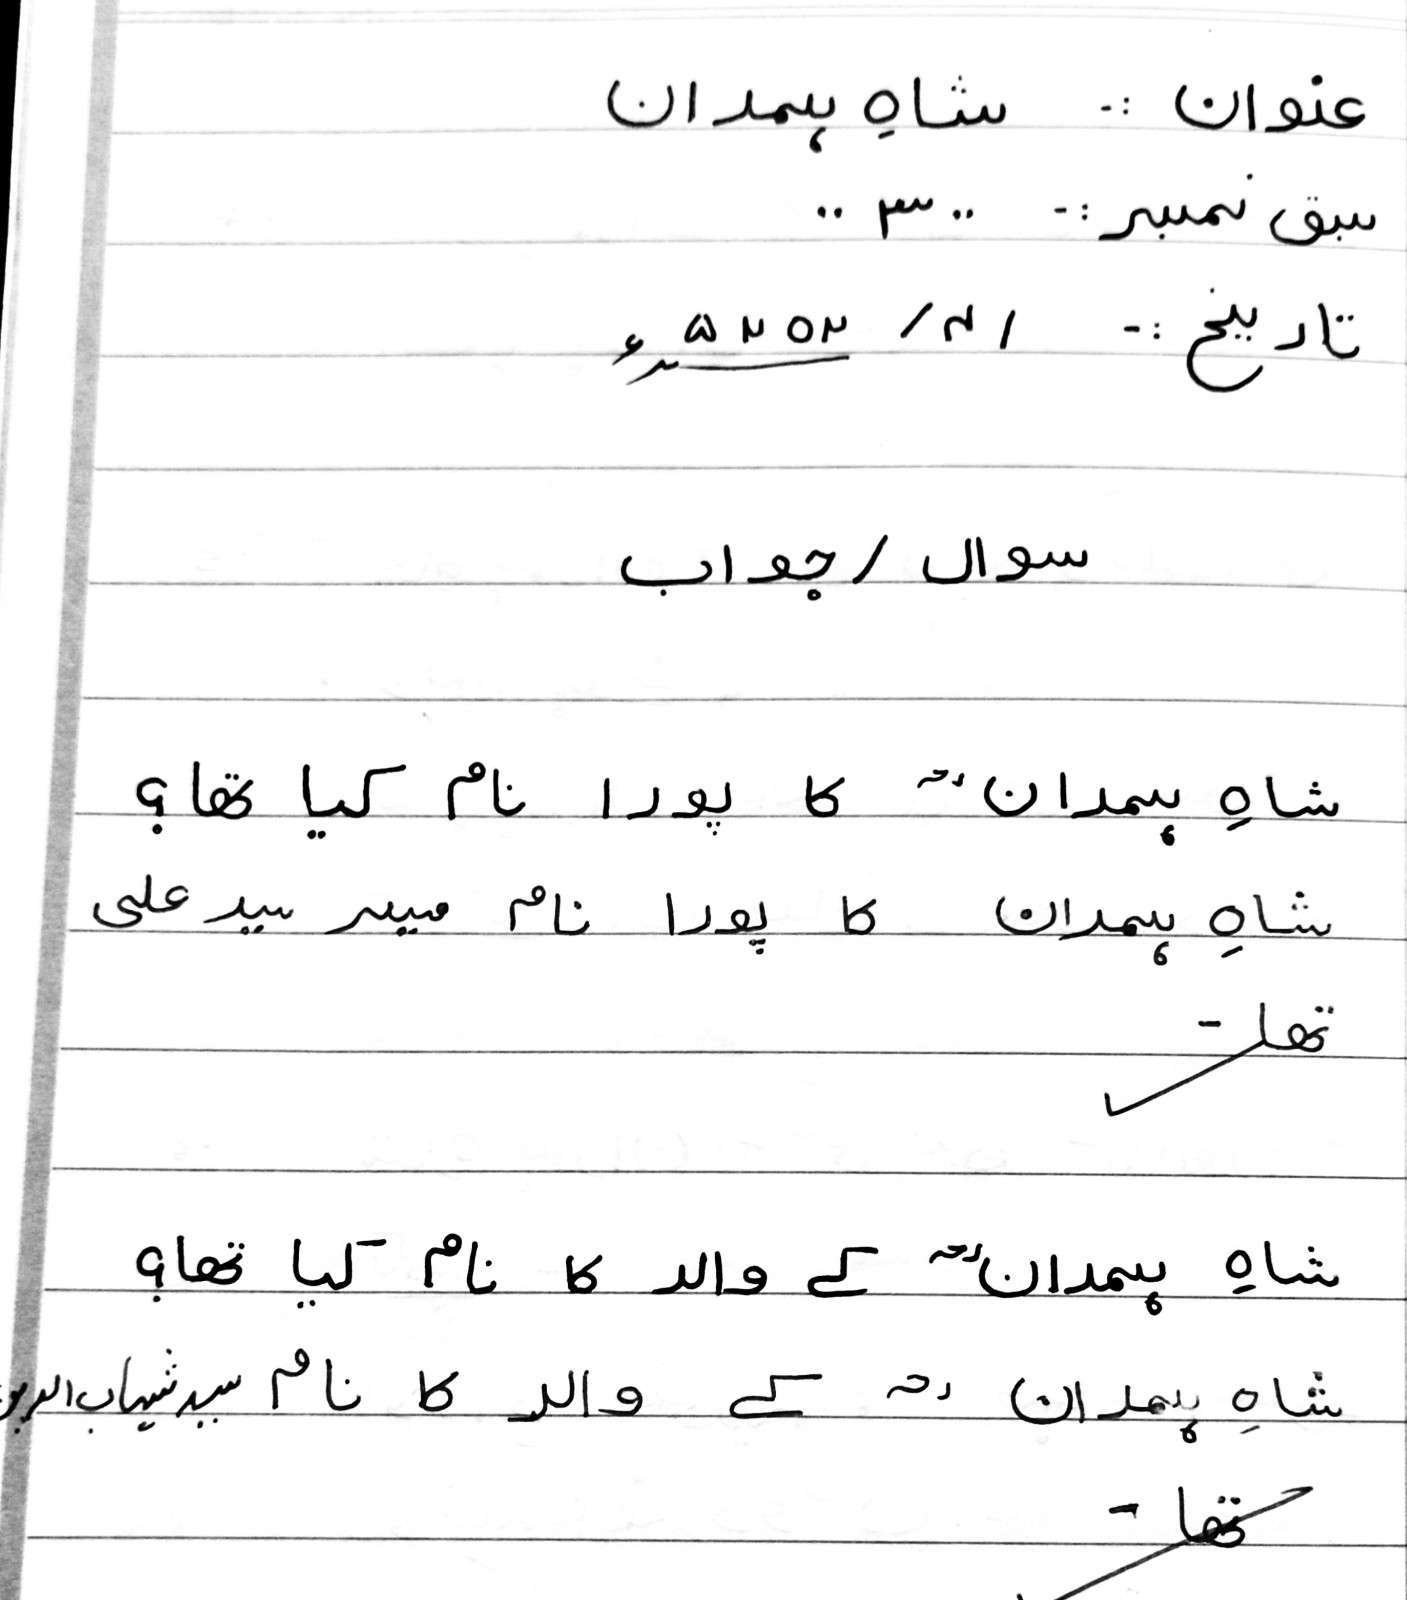 عنوان :- شاہِ ہمدان
سبق نمبر :- ..۳..
تاریخ :- ۱/۴/ ۲۵۲۵ء
سوال / جواب
شاہِ ہمدانؒ کا پورا نام کیا تھا؟
شاہِ ہمدان کا پورا نام میر سید علی
تھا -
شاہِ ہمدانؒ کے والد کا نام کیا تھا؟
شاہِ ہمدان رح کے والد کا نام سید شہاب الدین
تھا -